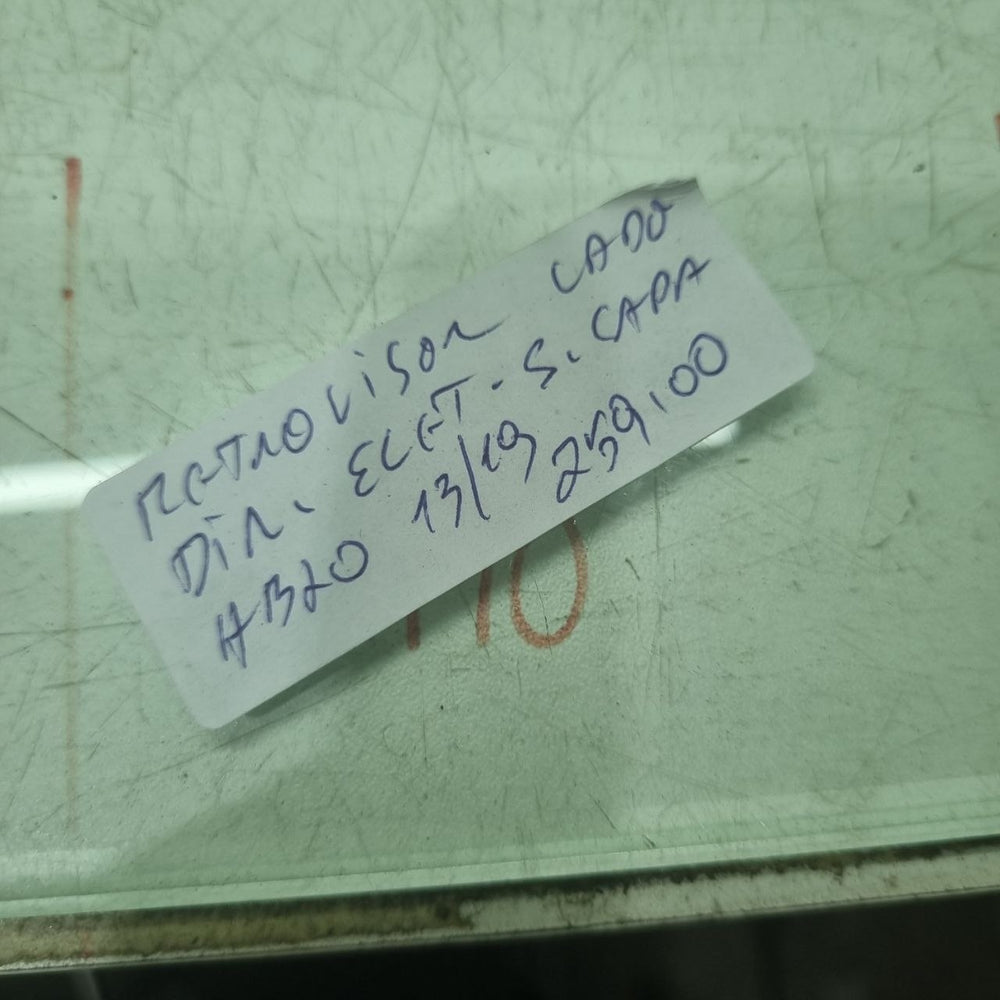 RETROVISOR LADO
DIR. ELET. S. CAPA
HB20 13/19 259,00
110